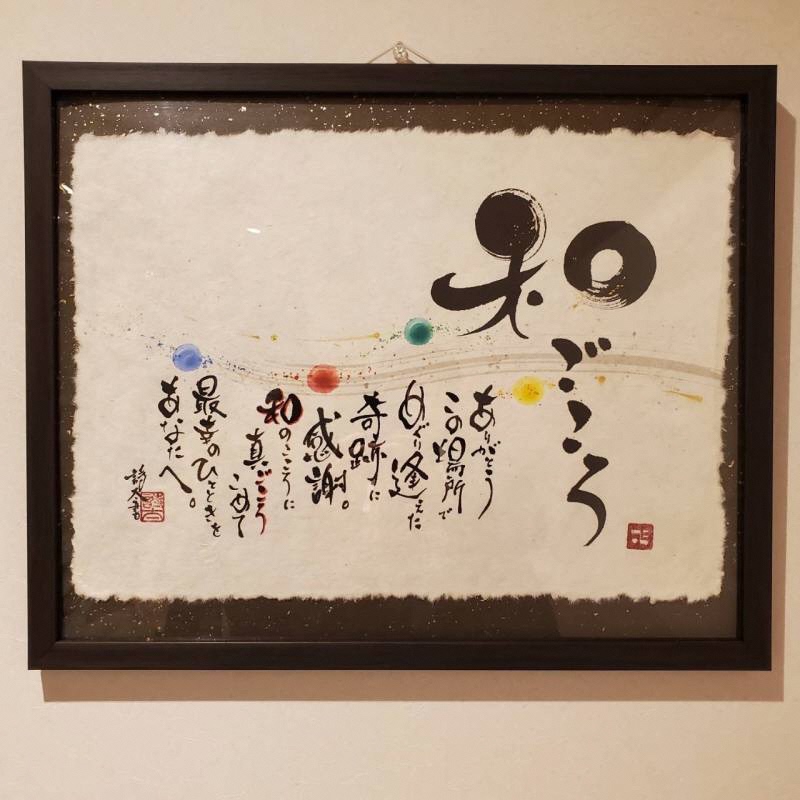 和ごころ
ありがとう
この場所で
めぐり逢えた
奇跡に
感謝。
和のこころに
真ごころ
こめて
最幸のひとときを
あなたへ。